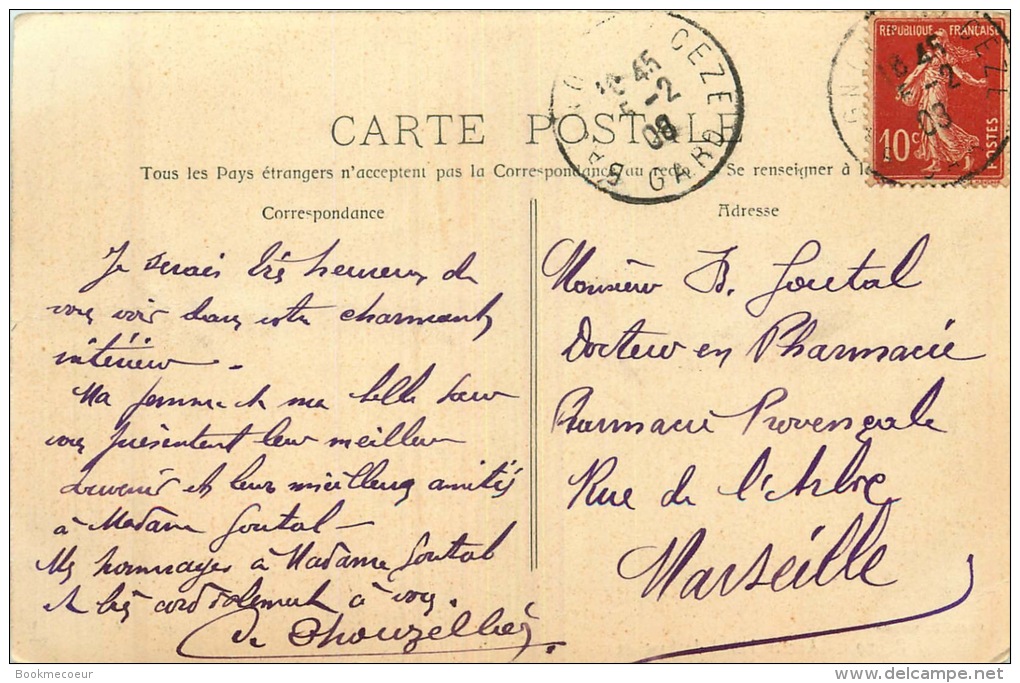 RÉPUBLIQUE FRANÇAISE
10c POSTES
CEZE
GARD
45
-2
08
CARTE POSTALE
Tous les Pays étrangers n'acceptent pas la Correspondance au recto. Se renseigner à la
Correspondance
Adresse
Je serais très heureux de
vous voir dans votre charmant
intérieur.
Ma femme et ma belle sœur
vous présentent leur meilleur
souvenir et leurs meilleures amitiés
à Madame Goutal -
Mes hommages à Madame Goutal
et très cordialement à vous.
Monsieur B. Goutal
Docteur en Pharmacie
Pharmacie Provençale
Rue de l'Arbre
Marseille
Bookmecoeur
delcampe.net